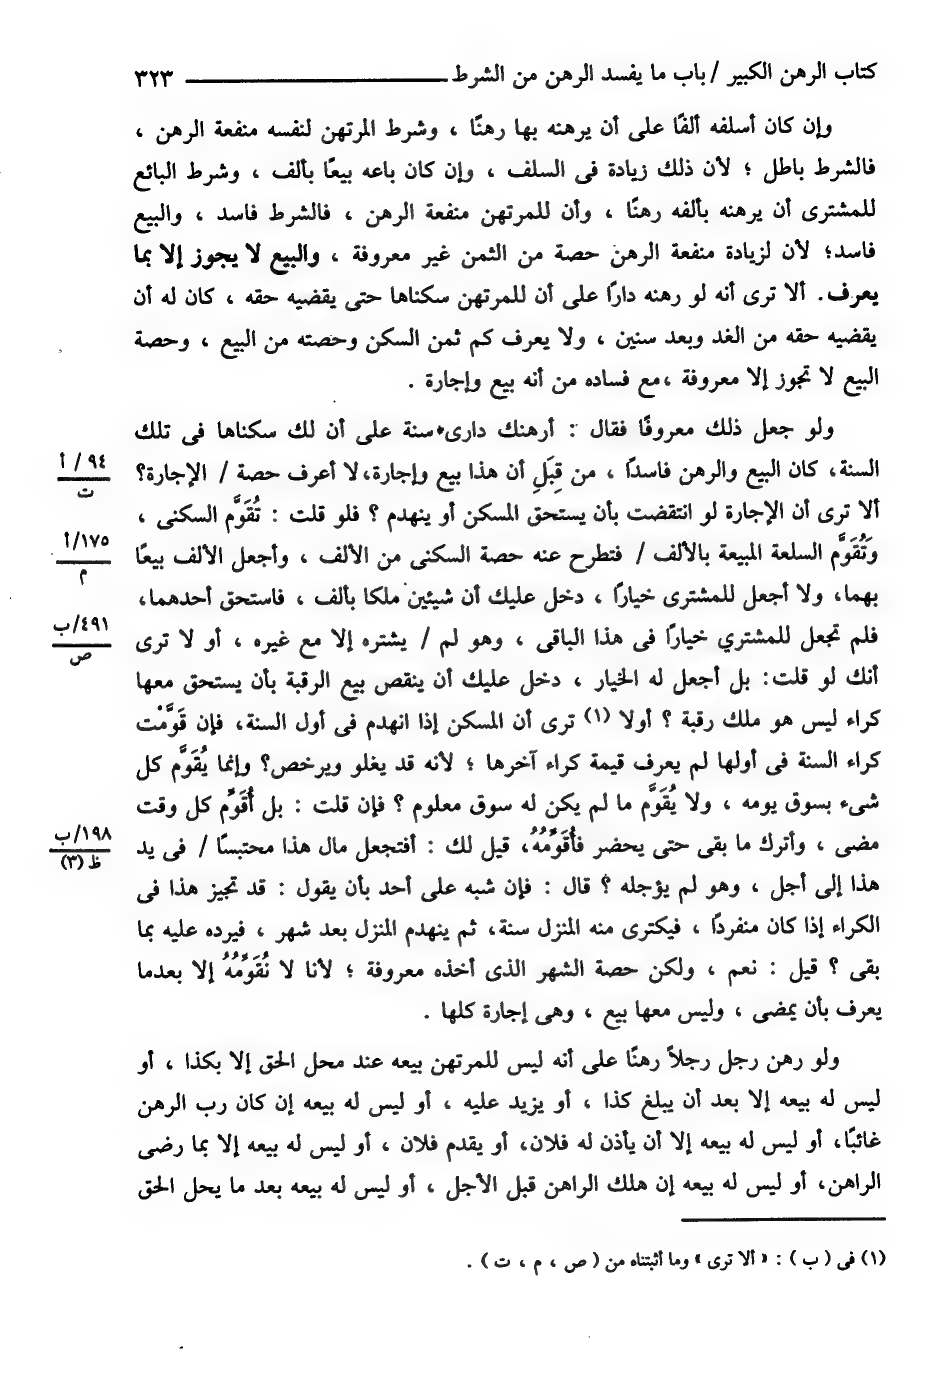 كتاب الرهن الكبير / باب ما يفسد الرهن من الشرط ــــــــــ ٣٢٣
وإن كان أسلفه ألفًا على أن يرهنه بها رهنًا ، وشرط المرتهن لنفسه منفعة الرهن ،
فالشرط باطل ؛ لأن ذلك زيادة فى السلف ، وإن كان باعه بيعًا بألف ، وشرط البائع
للمشترى أن يرهنه بألفه رهنًا ، وأن للمرتهن منفعة الرهن ، فالشرط فاسد ، والبيع
فاسد؛ لأن لزيادة منفعة الرهن حصة من الثمن غير معروفة ، والبيع لا يجوز إلا بما
يعرف. ألا ترى أنه لو رهنه دارًا على أن للمرتهن سكناها حتى يقضيه حقه ، كان له أن
يقضيه حقه من الغد وبعد سنين ، ولا يعرف كم ثمن السكن وحصته من البيع ، وحصة
البيع لا تجوز إلا معروفة ،مع فساده من أنه بيع وإجارة .
ولو جعل ذلك معروفًا فقال : أرهنك دارى سنة على أن لك سكناها فى تلك
السنة، كان البيع والرهن فاسدًا ، من قِبَلِ أن هذا بيع وإجارة،لا أعرف حصة / الإجارة؟
٩٤ / أ
ت
ألا ترى أن الإجارة لو انتقضت بأن يستحق المسكن أو ينهدم ؟ فلو قلت : تُقَوَّم السكنى ،
وَتُقَوَّم السلعة المبيعة بالألف / فتطرح عنه حصة السكنى من الألف ، وأجعل الألف بيعًا
١٧٥/أ
م
بهما، ولا أجعل للمشترى خيارًا ، دخل عليك أن شيئين ملكا بألف ، فاستحق أحدهما،
فلم تجعل للمشتري خيارًا فى هذا الباقى ، وهو لم / يشتره إلا مع غيره ، أو لا ترى
٤٩١/ب
ص
أنك لو قلت: بل أجعل له الخيار ، دخل عليك أن ينقص بيع الرقبة بأن يستحق معها
كراء ليس هو ملك رقبة ؟ أولا (١) ترى أن المسكن إذا انهدم فى أول السنة، فإن قَوَّمْت
كراء السنة فى أولها لم يعرف قيمة كراء آخرها ؛ لأنه قد يغلو ويرخص؟ وإنما يُقَوَّم كل
شىء بسوق يومه ، ولا يُقَوَّم ما لم يكن له سوق معلوم ؟ فإن قلت : بل أُقَوِّم كل وقت
مضى ، وأترك ما بقى حتى يحضر فأُقَوِّمُهُ، قيل لك : أفتجعل مال هذا محتبسًا / فى يد
١٩٨/ب
ظ (٣)
هذا إلى أجل ، وهو لم يؤجله ؟ قال : فإن شبه على أحد بأن يقول : قد تجيز هذا فى
الكراء إذا كان منفردًا ، فيكترى منه المنزل سنة، ثم ينهدم المنزل بعد شهر ، فيرده عليه بما
بقى ؟ قيل : نعم ، ولكن حصة الشهر الذى أخذه معروفة ؛ لأنا لا نُقَوِّمُهُ إلا بعدما
يعرف بأن يمضى ، وليس معها بيع ، وهى إجارة كلها .
ولو رهن رجل رجلاً رهنًا على أنه ليس للمرتهن بيعه عند محل الحق إلا بكذا ، أو
ليس له بيعه إلا بعد أن يبلغ كذا ، أو يزيد عليه ، أو ليس له بيعه إن كان رب الرهن
غائبًا، أو ليس له بيعه إلا أن يأذن له فلان، أو يقدم فلان ، أو ليس له بيعه إلا بما رضى
الراهن، أو ليس له بيعه إن هلك الراهن قبل الأجل ، أو ليس له بيعه بعد ما يحل الحق
(١) فى ( ب ) : « ألا ترى » وما أثبتناه من ( ص ، م ، ت ) .